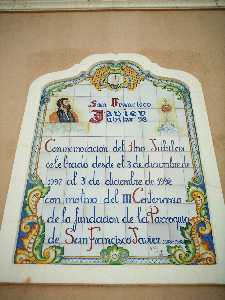 San Francisco
Javier
Jubilar 98
Conmemoracion del Año Jubilar
celebrado desde el 3 de diciembre de
1997 al 3 de diciembre de 1998
con motivo del III Centenario
de la fundacion de la Parroquia
de San Francisco Javier